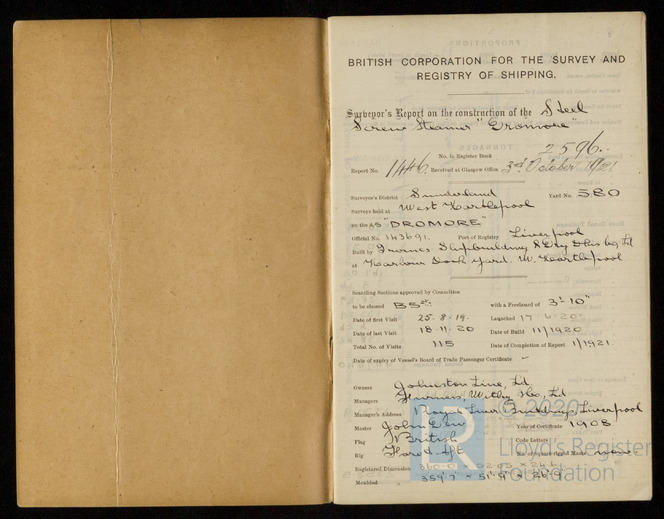 BRITISH CORPORATION FOR THE SURVEY AND
REGISTRY OF SHIPPING.
Surveyor's Report on the construction of the Steel
Screw Steamer "Dromore"
No. in Register Book 2596.
Report No. 1446 Received at Glasgow Office 3rd October 1921
Surveyor's District Sunderland Yard No. 580
Surveys held at West Hartlepool
on the SS "DROMORE"
Official No. 143691. Port of Registry Liverpool
Built by Irvines Shipbuilding & Dry Docks Co Ltd
at Harbour Dock Yard. W. Hartlepool
Scantling Sections approved by Committee
to be classed BS with a Freeboard of 3'-10"
Date of first Visit 25.8.19. Launched 17.6.20
Date of last Visit 18.11.20 Date of Build 11/1920
Total No. of Visits 115 Date of Completion of Report 1/1921
Date of expiry of Vessel's Board of Trade Passenger Certificate -
Owners Johnston Line, Ld
Managers Furness, Withy & Co, Ld
Manager's Address Royal Liver Buildings, Liverpool
Master John Year of Certificate 1908
Flag British Code Letters
Rig Fore & Aft No. of Square-rigged Masts none.
Registered Dimensions
Moulded 359'7" × 51'9"
© 2020
Lloyd's Register
Foundation